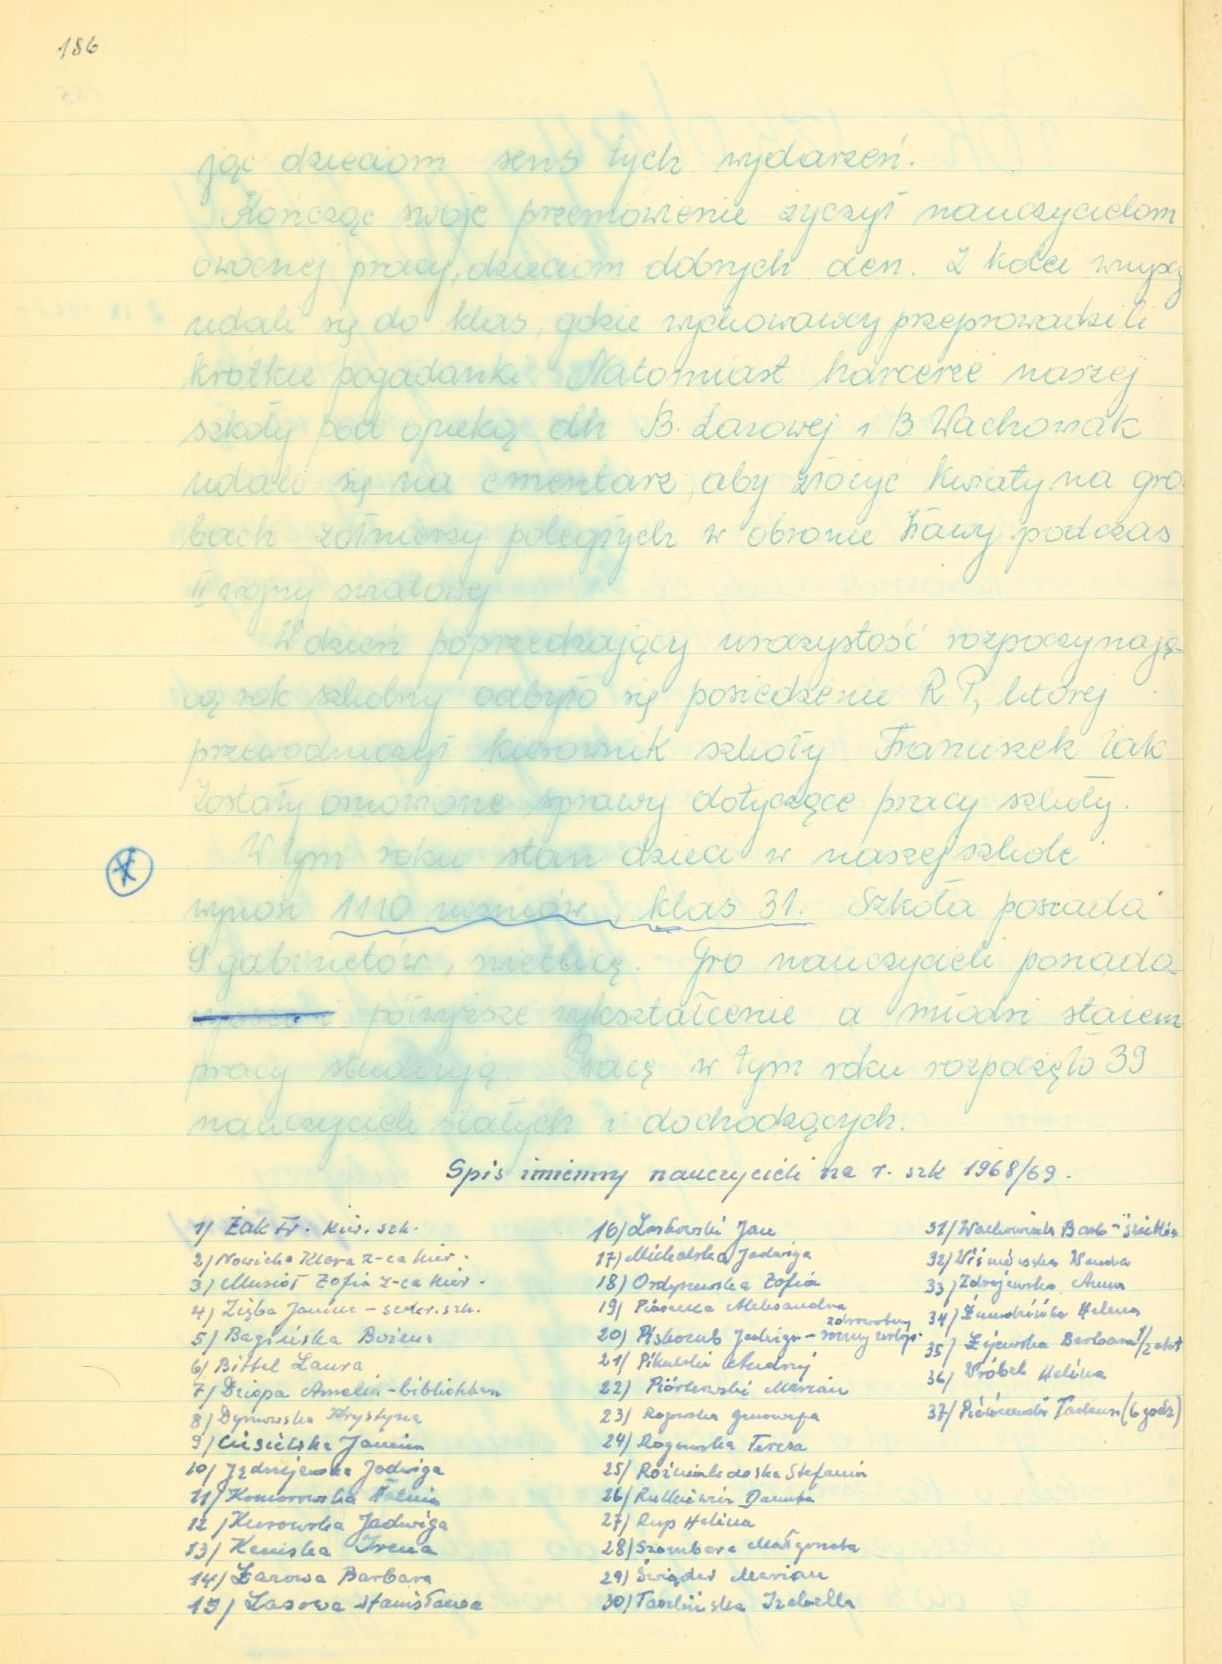 186
jąc dzieciom sens tych wydarzeń.
Kończąc swoje przemówienie życzył nauczycielom
owocnej pracy, dzieciom dobrych cen. Z kolei wszyscy
udali się do klas, gdzie wychowawcy przeprowadzili
krótkie pogadanki. Natomiast harcerze naszej
szkoły pod opieką dh B. Łazowej i B Wachowiak
udali się na cmentarz, aby złożyć kwiaty na gro
bach żołnierzy poległych w obronie Iławy podczas
II wojny światowej
W dzień poprzedzający uroczystość rozpoczynają-
cą rok szkolny odbyło się posiedzenie R P, której
przewodniczył kierownik szkoły Franciszek Żak
Zostały omówione sprawy dotyczące pracy szkoły.
W tym roku stan dzieci w naszej szkole
wynosi 1110 uczniów, klas 31. Szkoła posiada
9 gabinetów, świetlicę. Gro nauczycieli posiada
półwyższe wykształcenie a młodzi stażem
pracy studiują. Pracę w tym roku rozpoczęło 39
nauczycieli stałych i dochodzących.
Spis imienny nauczycieli na r. szk 1968/69.
1/ Żak Fr. kier. szk.
2/ Nowicka Klara z-ca kier.
3/ Musioł Zofia z-ca kier.
4/ Zięba Janina - sekr. szk.
5/ Bagińska Bożena
6/ Bittel Laura
7/ Dziopa Amelia - bibliotekar.
8/ Dymowska Krystyna
9/ Ciesielska Janina
10/ Jędrzejewska Jadwiga
11/ Komorowska
12/ Kurowska Jadwiga
13/ Irena
14/ Łazowa Barbara
15/ Lasowa Stanisława
16/ Laskowski Jan
17/ Michalska Jadwiga
18/ Ordyszewska Zofia
19/ Piasecka Aleksandra
20/ Piskozub Jadwiga - zdrowotny
21/ Pikulski Andrzej
22/ Piórkowski Marian
23/ Rogowska Genowefa
24/ Rogowska Teresa
25/ Stefania
26/ Rutkiewicz Danuta
27/ Rup Helena
28/ Szombara Małgorzata
29/ Świąder Marian
30/ Izabella
31/ Wachowiak Barb -
32/ Wiśniewska Wanda
33/ Zdrojewska Anna
34/ Helena
35/ Zajewska Barbara 1/2 etat
36/ Wróbel Helena
37/ Tadeusz (6 godz)